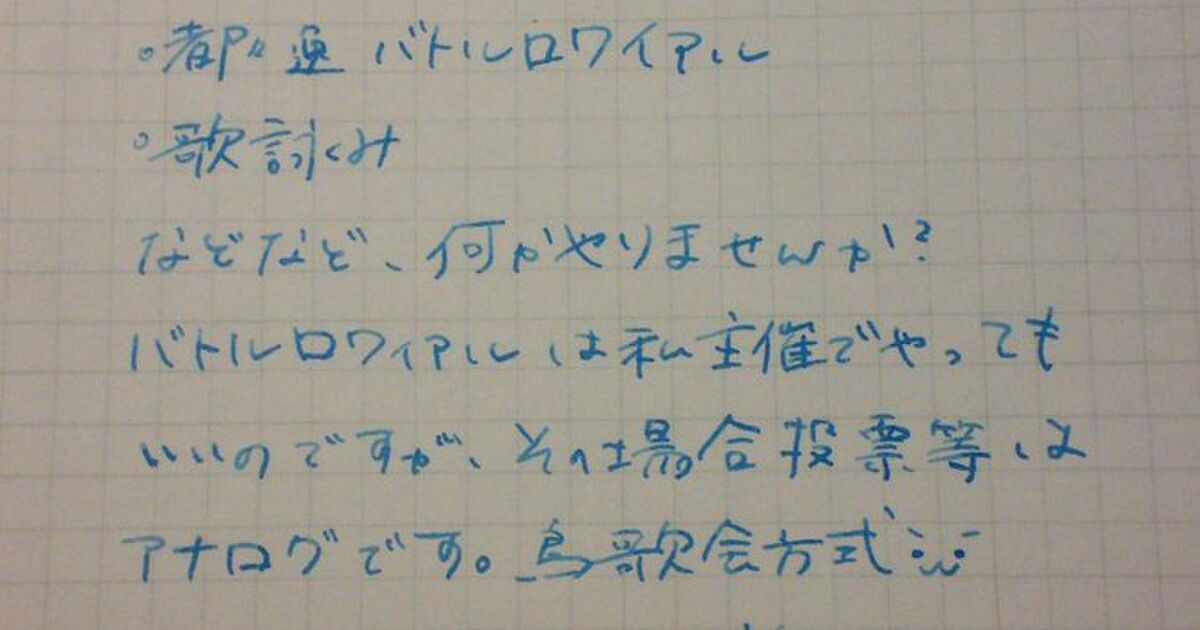 ・都々逸 バトルロワイアル
・歌詠み
などなど、何かやりませんか？
バトルロワイアルは私主催でやっても
いいのですが、その場合投票等は
アナログです。鳥歌会方式